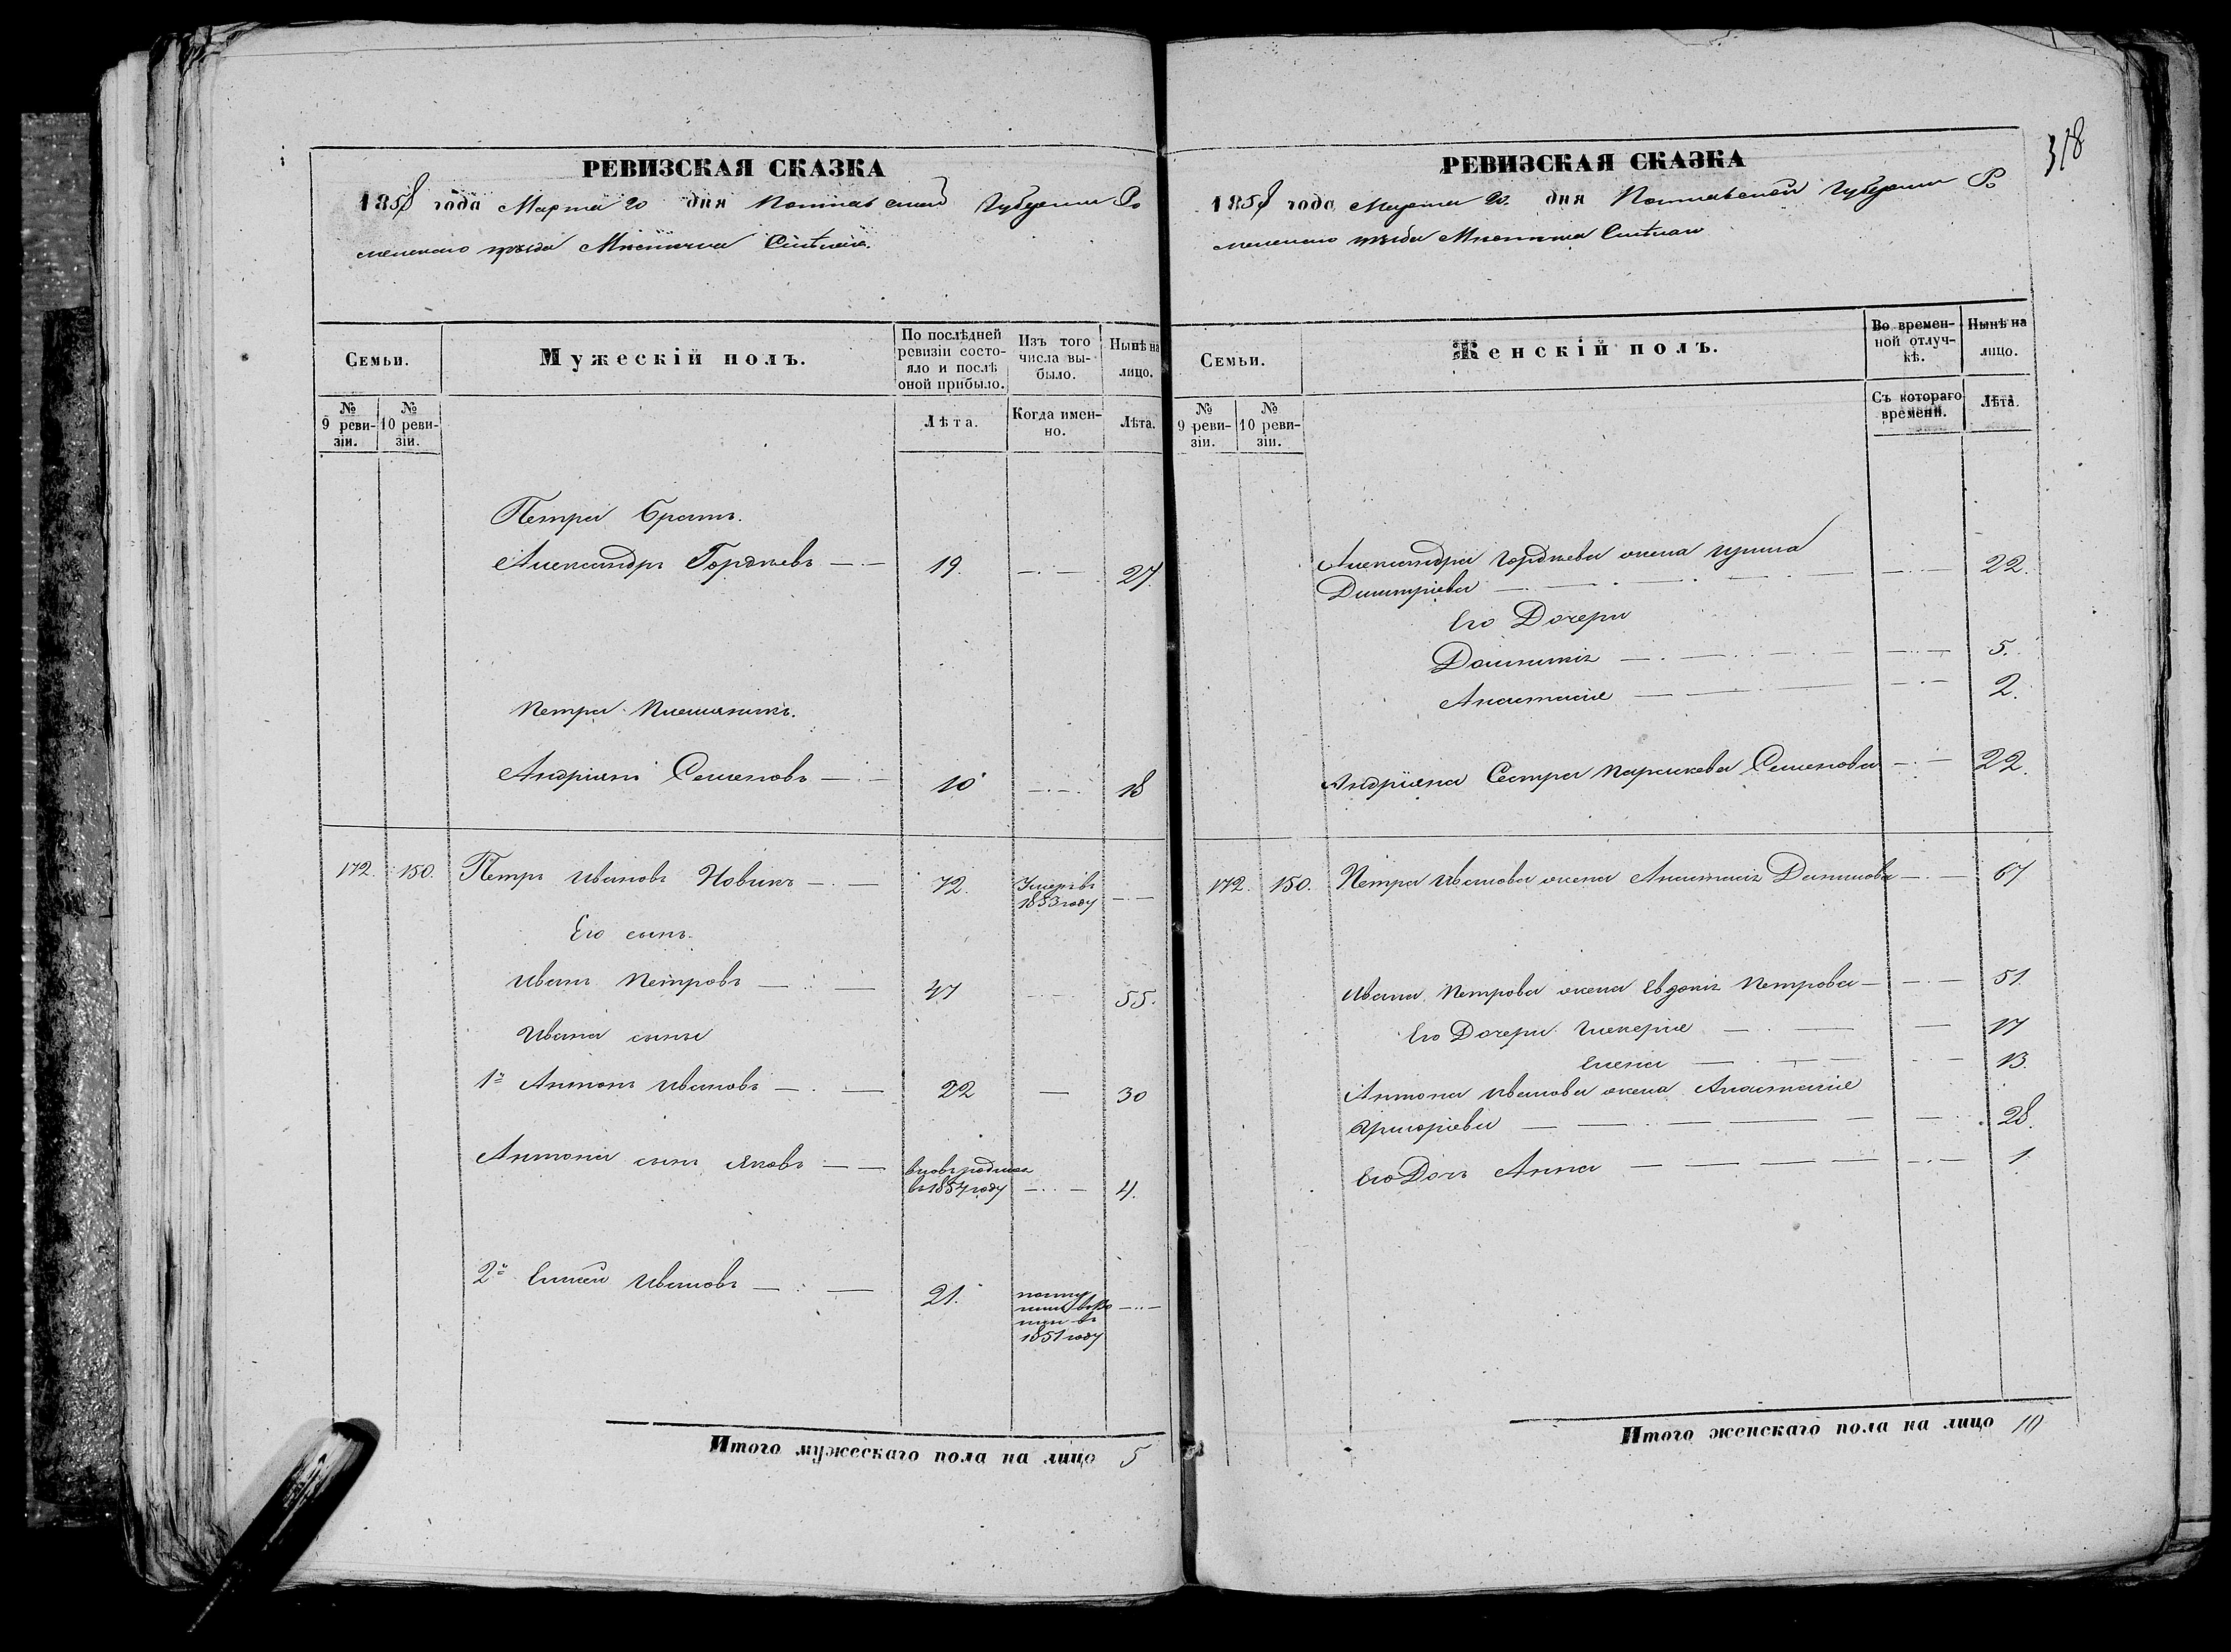 РЕВИЗСКАЯ СКАЗКА
1858 года Марта 20 дня Полтавской Губернии Ро
менского уезда Местечка Смѣлаго
Семьи.
Мужескій полъ.
По послѣдней ревизіи состо-
яло и послѣ
оной прибыло.
Изъ того
числа вы-
было.
Нынѣ на
лицо.
№
9 реви-
зіи.
№
10 реви-
зіи.
Лѣта.
Когда имен-
но.
Лѣта.
Петра братъ.
Александръ Гордѣевъ 19. 27.
Петра племяникъ.
Андріянъ Семеновъ 10 18
172. 150. Петръ Ивановъ Новикъ 72. Умеръ въ
1853 году
Его сынъ.
Иванъ Петровъ 47 55.
Ивана сыны
1й Антонъ Ивановъ 22 30
Антона сынъ Яковъ
въ 1854 году 4.
2й Ивановъ 21.
въ
1851 году
Итого мужескаго пола на лицо 5
318
РЕВИЗСКАЯ СКАЗКА
1858 года Марта 20. дня Полтавской Губернии Ро
менского уезда Местечка Смѣлаго
Семьи.
Женскій полъ.
Во времен-
ной отлуч-
кѣ.
Нынѣ на
лицо.
№
9 реви-
зіи.
№
10 реви-
зіи.
Съ котораго
времени.
Лѣта.
Александра Гордѣева жена
Димитріева 22.
Его Дочери
Домникія 5.
Анастасія 2.
Андріяна Сестра Параскева Семенова 22.
172. 150. Петра Иванова жена Анастасія Данилова 67
Ивана Петрова жена Евдокія Петрова 51.
Его Дочери Гликерія 17
Елена 13.
Антона Иванова жена Анастасія
Григоріева 28.
Его Дочь Анна 1.
Итого женскаго пола на лицо 10